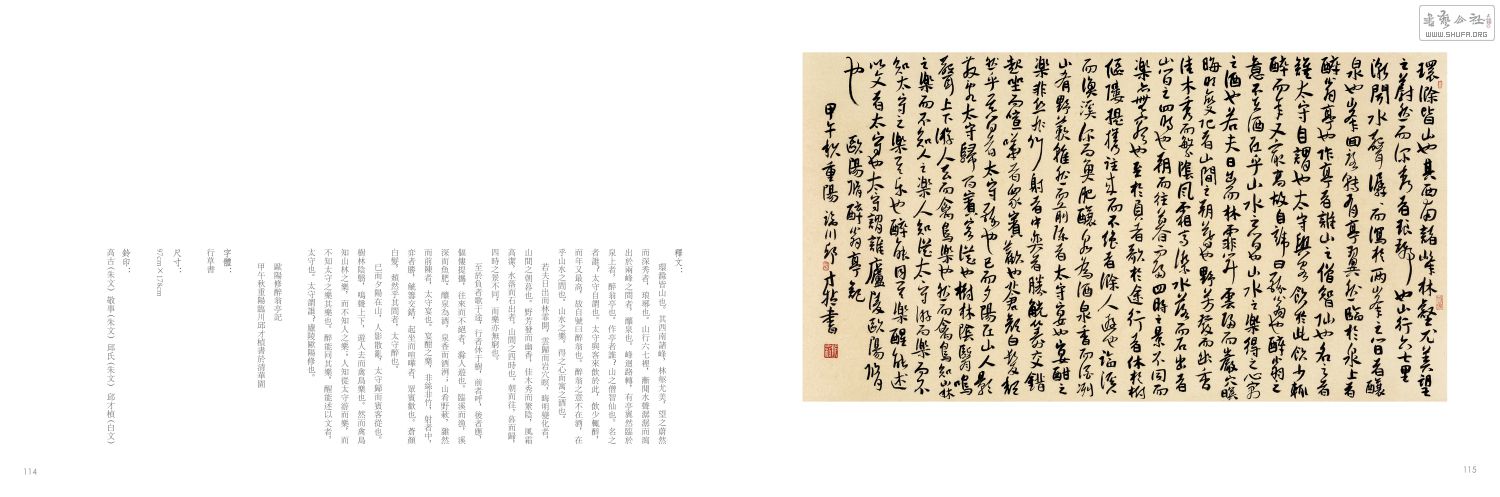 書藝公社
WWW.SHUFA.ORG
環滁皆山也其西南諸峰林壑尤美望
之蔚然而深秀者琅琊也山行六七里
漸聞水聲潺潺而瀉於兩峰之間者釀
泉也峰回路轉有亭翼然臨於泉上者
醉翁亭也作亭者誰山之僧智仙也名之者
誰太守自謂也太守與客飲於此飲少輒
醉而年又最高故自號曰醉翁也醉翁之
意不在酒在乎山水之間也山水之樂得之心而寓
之酒也若夫日出而林霏開雲歸而巖穴暝
晦明變化者山間之朝暮也野芳發而幽香
佳木秀而繁陰風霜高潔水落而石出者
山間之四時也朝而往暮而歸四時之景不同而
樂亦無窮也至於負者歌於途行者休於樹
傴僂提攜往來而不絕者滁人遊也臨溪
而漁溪深而魚肥釀泉為酒泉香而酒洌
山肴野蔌雜然而前陳者太守宴也宴酣之
樂非絲非竹射者中弈者勝觥籌交錯
起坐而喧嘩者眾賓歡也蒼顏白髮頹
然乎其間者太守醉也已而夕陽在山人影
散亂太守歸而賓客從也樹林陰翳鳴
聲上下遊人去而禽鳥樂也然而禽鳥知山林
之樂而不知人之樂人知從太守游而樂而不
知太守之樂其樂也醉能同其樂醒能述
以文者太守也太守謂誰廬陵歐陽脩
也
歐陽脩醉翁亭記
甲午秋重陽臨川邱才楨書
115
釋文：
環滁皆山也。其西南諸峰，林壑尤美，望之蔚然
而深秀者，琅琊也。山行六七裡，漸聞水聲潺潺而瀉
出於兩峰之間者，釀泉也。峰迴路轉，有亭翼然臨於
泉上者，醉翁亭也。作亭者誰？山之僧智仙也。名之
者誰？太守自謂也。太守與客來飲於此，飲少輒醉，
而年又最高，故自號曰醉翁也。醉翁之意不在酒，在
乎山水之間也。山水之樂，得之心而寓之酒也。
若夫日出而林霏開，雲歸而岩穴暝，晦明變化者，
山間之朝暮也。野芳發而幽香，佳木秀而繁陰，風霜
高潔，水落而石出者，山間之四時也。朝而往，暮而歸，
四時之景不同，而樂亦無窮也。
至於負者歌于途，行者休于樹，前者呼，後者應，
傴僂提攜，往來而不絕者，滁人遊也。臨溪而漁，溪
深而魚肥，釀泉為酒，泉香而酒洌；山肴野蔌，雜然
而前陳者，太守宴也。宴酣之樂，非絲非竹，射者中，
弈者勝，觥籌交錯，起坐而喧嘩者，眾賓歡也。蒼顏
白髮，頹然乎其間者，太守醉也。
已而夕陽在山，人影散亂，太守歸而賓客從也。
樹林陰翳，鳴聲上下，遊人去而禽鳥樂也。然而禽鳥
知山林之樂，而不知人之樂；人知從太守游而樂，而
不知太守之樂其樂也。醉能同其樂，醒能述以文者，
太守也。太守謂誰？廬陵歐陽修也。
歐陽修醉翁亭記
甲午秋重陽臨川邱才楨書於清華園
字體：
行草書
尺寸：
97cm×178cm
鈐印：
高古(朱文) 敬事(朱文) 邱氏(朱文) 邱才楨(白文)
114